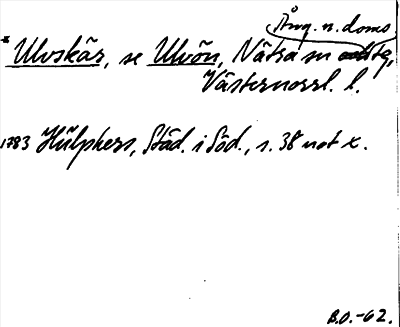 Ång. n. doms
x Ulvskär, se Ulvön, Nätra sn
Västernorrl. l.
1783 Hülphers, Städ. i Söd., s. 38 not x.
B.O.-62.